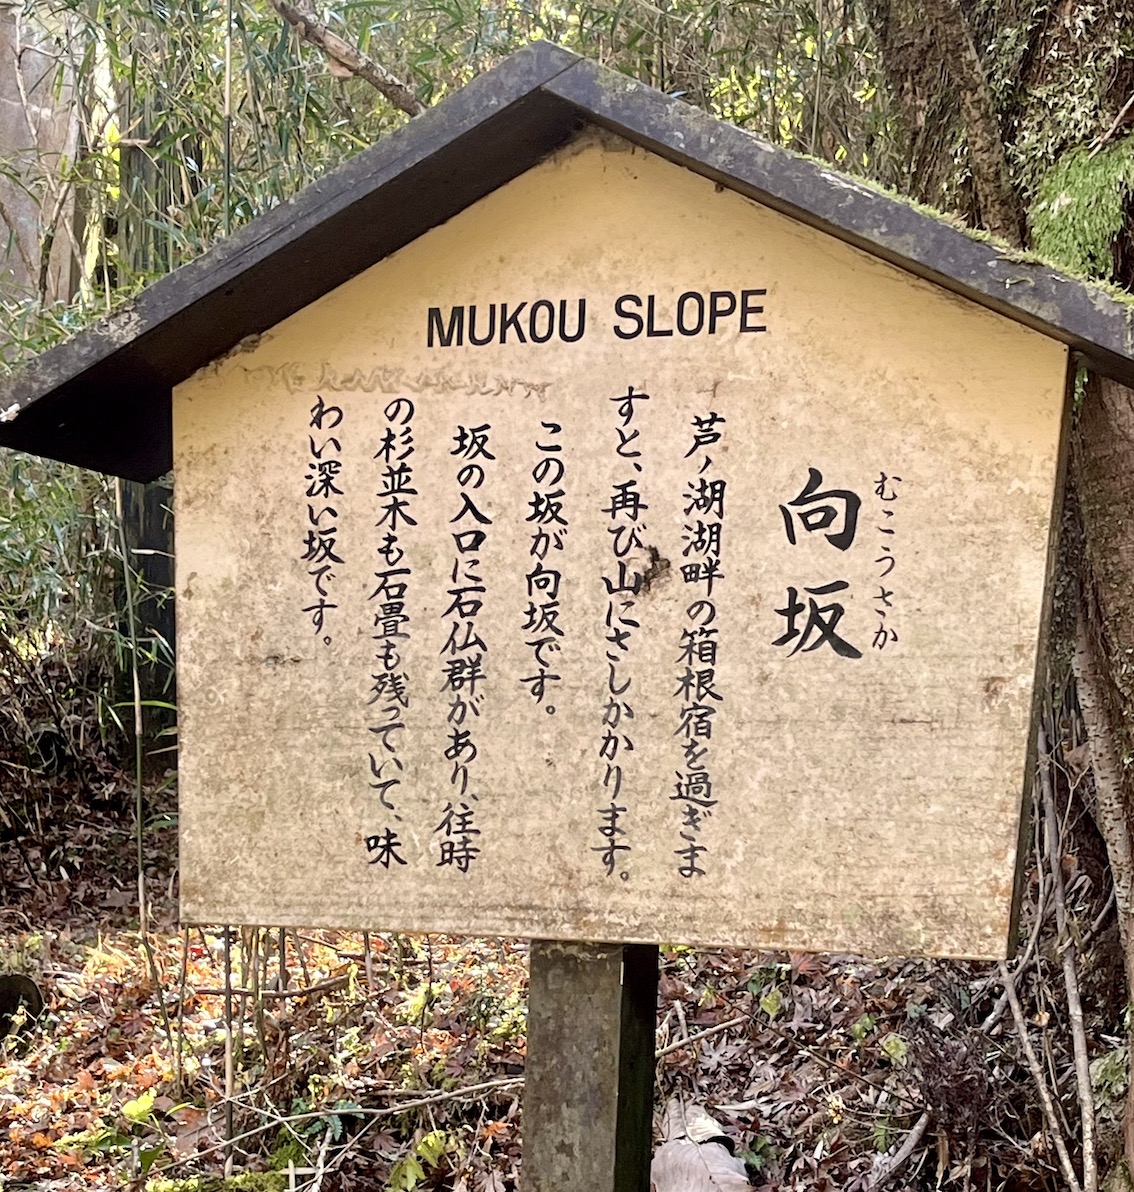 MUKOU SLOPE
むこうさか
向坂
芦ノ湖湖畔の箱根宿を過ぎま
すと、再び山にさしかかります。
この坂が向坂です。
坂の入口に石仏群があり、往時
の杉並木も石畳も残っていて、味
わい深い坂です。